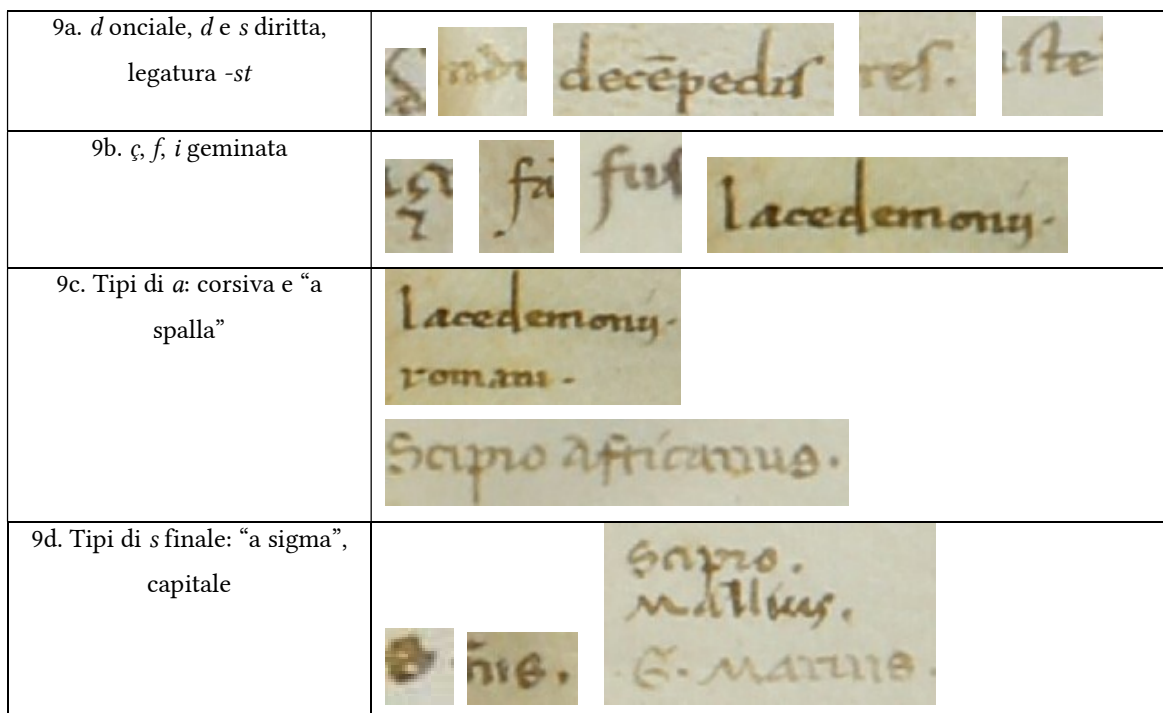 9a. d onciale, d e s diritta,
legatura -st
decēpedis
res.
ste
9b. ç, f, i geminata
fa
fius
lacedemonij.
9c. Tipi di a: corsiva e “a
spalla”
lacedemonij.
romani.
Scipio Affricanus.
9d. Tipi di s finale: “a sigma”,
capitale
nus.
Scipio.
Mallius.
G. Marius.